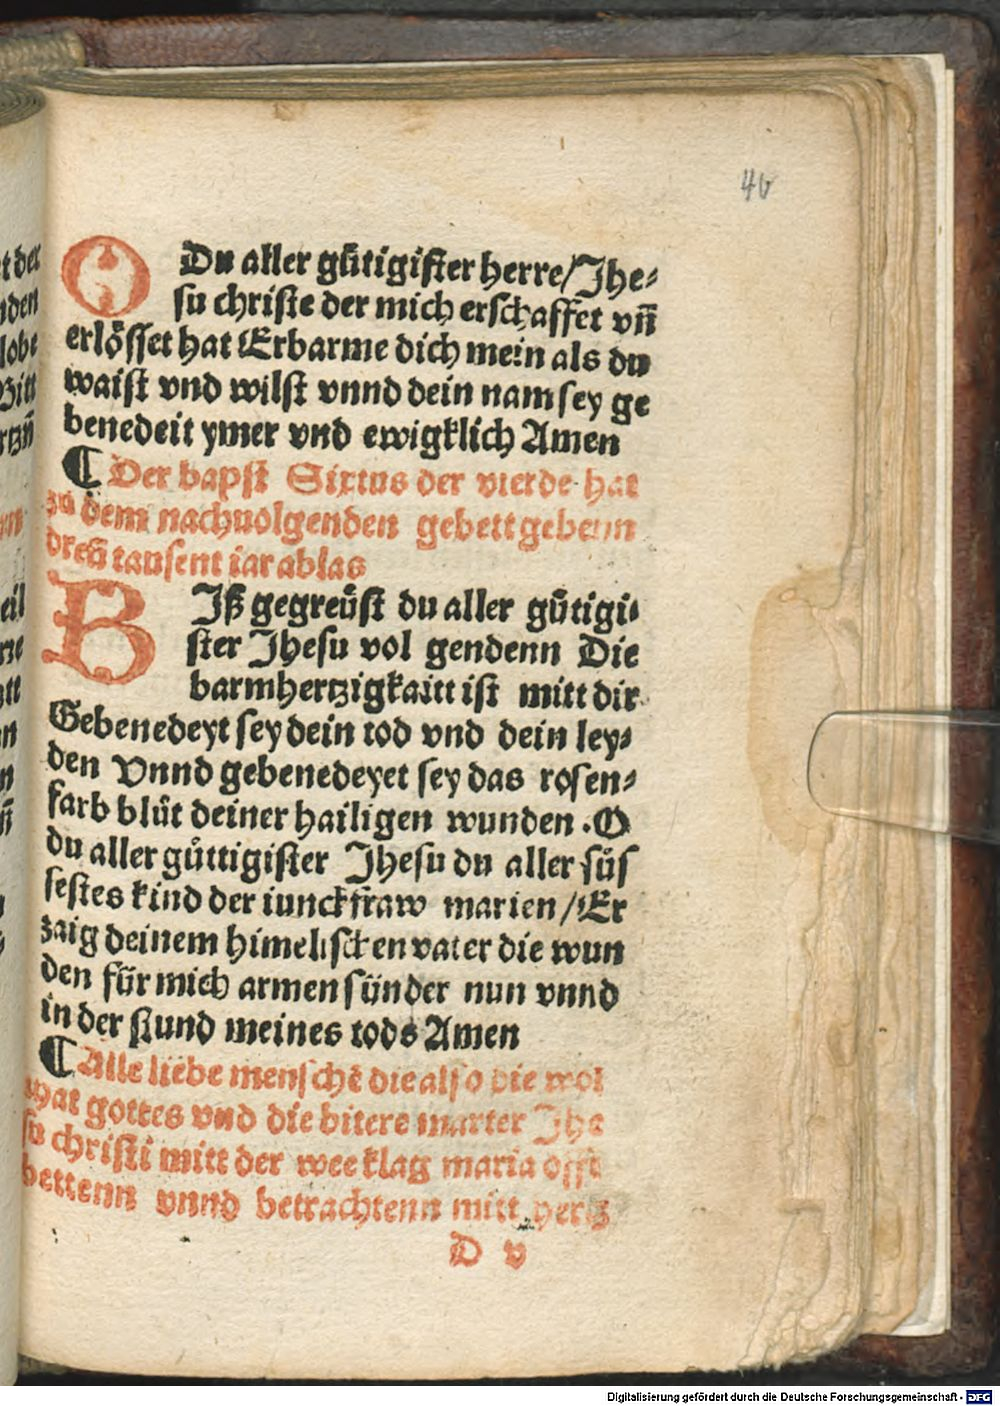 46
O Du aller gůtigister herre/Jhe-
su christe der mich erschaffet vñ
erlősset hat Erbarme dich mein als du
waist vnd wilst vnnd dein nam sey ge
benedeit ymer vnd ewigklich Amen
¶ Der bapst Sixtus der vierde hat
zu dem nachuolgenden gebett gebenn
dreü tausent iar ablas
B Jß gegreüst du aller gůtigi-
ster Jhesu vol gendenn Die
barmhertzigkaitt ist mitt dir
Gebenedeyt sey dein tod vnd dein ley-
den Vnnd gebenedeyet sey das rosen-
farb blůt deiner hailigen wunden .O
du aller gůttigister Jhesu du aller sůs
sestes kind der iunckfraw marien/Er
zaig deinem himelischen vater die wun
den für mich armen sünder nun vnnd
in der stund meines tods Amen
¶ Alle liebe menschē die also die wol
that gottes vnd die bitere marter Jhe
su christi mitt der wee klag maria offt
bettenn vnnd betrachtenn mitt hertz
D v
t der
nden
lobe
Bitt
rtzñ
eil
Digitalisierung gefördert durch die Deutsche Forschungsgemeinschaft - DFG